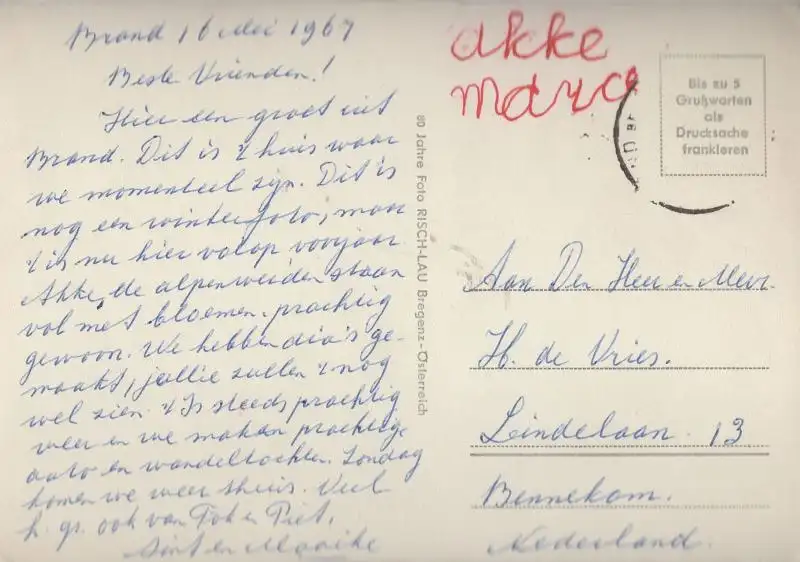 Brand 16 Mei 1967
Beste Vrienden!
Hier een groet uit
Brand. Dit is 't huis waar
we momenteel zijn. Dit is
nog een winterfoto, maar
't is nu hier volop voorjaar.
Akke, de alpenweiden staan
vol met bloemen, prachtig
gewoon. We hebben dia's ge-
maakt, jullie zullen 't nog
wel zien. 't Is steeds prachtig
weer en we maken prachtige
auto en wandeltochten. Zondag
komen we weer thuis. Veel
h. gr. ook van Fok en Piet.
Sint en Maaike
80 Jahre Foto RISCH-LAU Bregenz-Österreich
akke
Bis zu 5
Grußworten
als
Drucksache
frankieren
Aan Den Heer en Mevr.
H. de Vries.
Lindelaan 13
Bennekom.
Nederland.